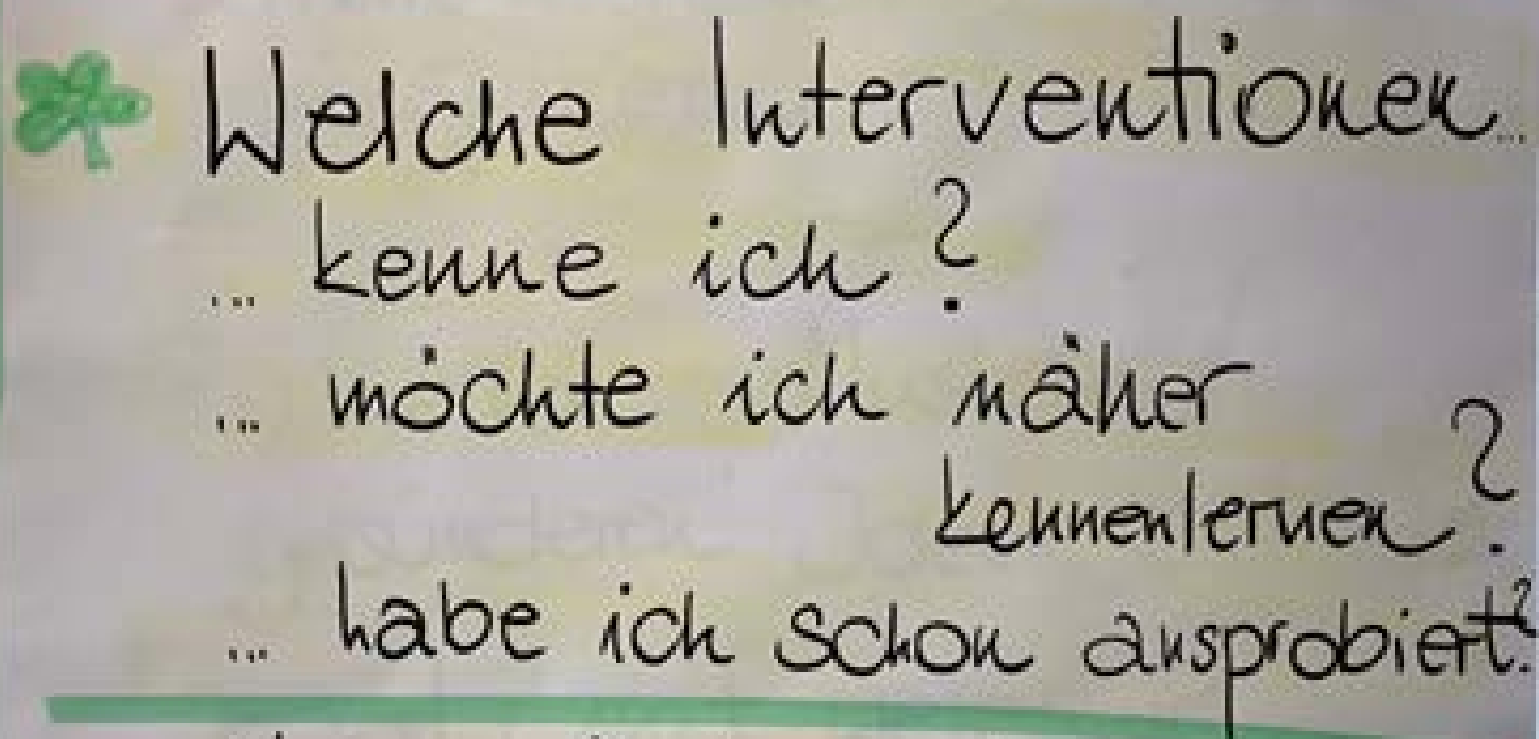 Welche Interventionen...
... kenne ich?
... möchte ich näher
kennenlernen?
... habe ich schon ausprobiert?